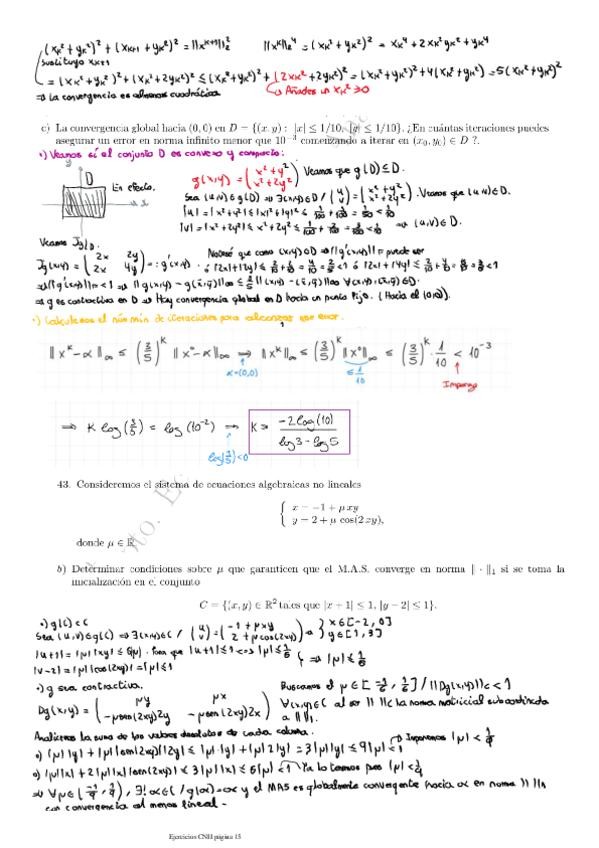 (xₖ² + yₖ²)² + (xₖ₊₁ + yₖ²)² = ||xᵏ⁺¹||₂² ||xᵏ||₂⁴ = (xₖ² + yₖ²)² = xₖ⁴ + 2xₖ²yₖ² + yₖ⁴
sustituyo xₖ₊₁
= (xₖ² + yₖ²)² + (xₖ² + 2yₖ²)² ≤ (xₖ² + yₖ²)² + (2xₖ² + 2yₖ²)² = (xₖ² + yₖ²)² + 4(xₖ² + yₖ²) = 5(xₖ² + yₖ²)²
⇒ La convergencia es al menos cuadrática Añades un xₖ² ≥ 0
c) La convergencia global hacia (0, 0) en D = {(x, y) : |x| ≤ 1/10, |y| ≤ 1/10}. ¿En cuántas iteraciones puedes
asegurar un error en norma infinito menor que 10⁻³ comenzando a iterar en (x₀, y₀) ∈ D ?.
•) Veamos si el conjunto D es convexo y compacto:
D
En efecto. g(x,y) = (x² + y² / x² + 2y²) Veamos que g(D) ⊆ D.
Sea (u,v) ∈ g(D) ⇒ ∃(x,y) ∈ D / (u / v) = (x² + y² / x² + 2y²). Veamos que (u,v) ∈ D.
|u| = |x² + y²| ≤ |x|² + |y|² ≤ 1/100 + 1/100 = 1/50 < 1/10
⇒ (u,v) ∈ D.
Veamos Jg|D.
Jg(x,y) = (2x 2y / 2x 4y) =: g'(x,y).
⇒ g es contractiva en D ⇒ Hay convergencia global en D hacia un punto fijo. (Hacia el (0,0)).
•) Calculemos el núm mín de iteraciones para alcanzar ese error.
||xᵏ − α||∞ ≤ (3/5)ᵏ ||x⁰ − α||∞ ⇒ ||xᵏ||∞ ≤ (3/5)ᵏ ||x⁰||∞ ≤ (3/5)ᵏ · 1/10 < 10⁻³
α = (0,0) ≤ 1/10 Impongo
⇒ K log(3/5) = log(10⁻²) ⇒ K > −2 log(10) / log 3 − log 5
log(3/5) < 0
43. Consideremos el sistema de ecuaciones algebraicas no lineales
{ x = −1 + μ xy
{ y = 2 + μ cos(2xy),
donde μ ∈ ℝ
b) Determinar condiciones sobre μ que garanticen que el M.A.S. converge en norma || · ||₁ si se toma la
inicialización en el conjunto
C = {(x, y) ∈ ℝ² tales que |x + 1| ≤ 1, |y − 2| ≤ 1}.
•) g(C) ⊂ C
Sea (u,v) ∈ g(C) ⇒ ∃(x,y) ∈ C / (u / v) = (−1 + μxy / 2 + μcos(2xy)) ⇒ } x ∈ [−2, 0] y ∈ [1, 3]
|u+1| = |μ||xy| ≤ 6|μ|. Para que |u+1| ≤ 1 ⇔ |μ| ≤ 1/6
|v−2| = |μ||cos(2xy)| ≤ |μ| ≤ 1 } ⇒ |μ| ≤ 1/6
•) g sea contractiva. Buscamos el μ ∈ [−1/6, 1/6] / ||Dg(x,y)||c < 1
Dg(x,y) = (μy μx / −μsen(2xy)2y −μsen(2xy)2x) ∀(x,y) ∈ C al ser || ||c la norma matricial subordinada
a || ||₁.
Analicemos la suma de los valores absolutos de cada columna.
•) |μ||y| + |μ||sen(2xy)||2y| ≤ |μ|·|y| + |μ|2|y| = 3|μ||y| ≤ 9|μ| < 1 Imponemos |μ| < 1/9
•) |μ||x| + 2|μ||x||sen(2xy)| ≤ 3|μ||x| ≤ 6|μ| < 1 Ya lo tenemos pues |μ| < 1/9
⇒ ∀μ ∈ (−1/9, 1/9), ∃! α ∈ C / g(α) = α y el MAS es globalmente convergente hacia α en norma || ||₁
con convergencia al menos lineal.
Ejercicios CNII página 15